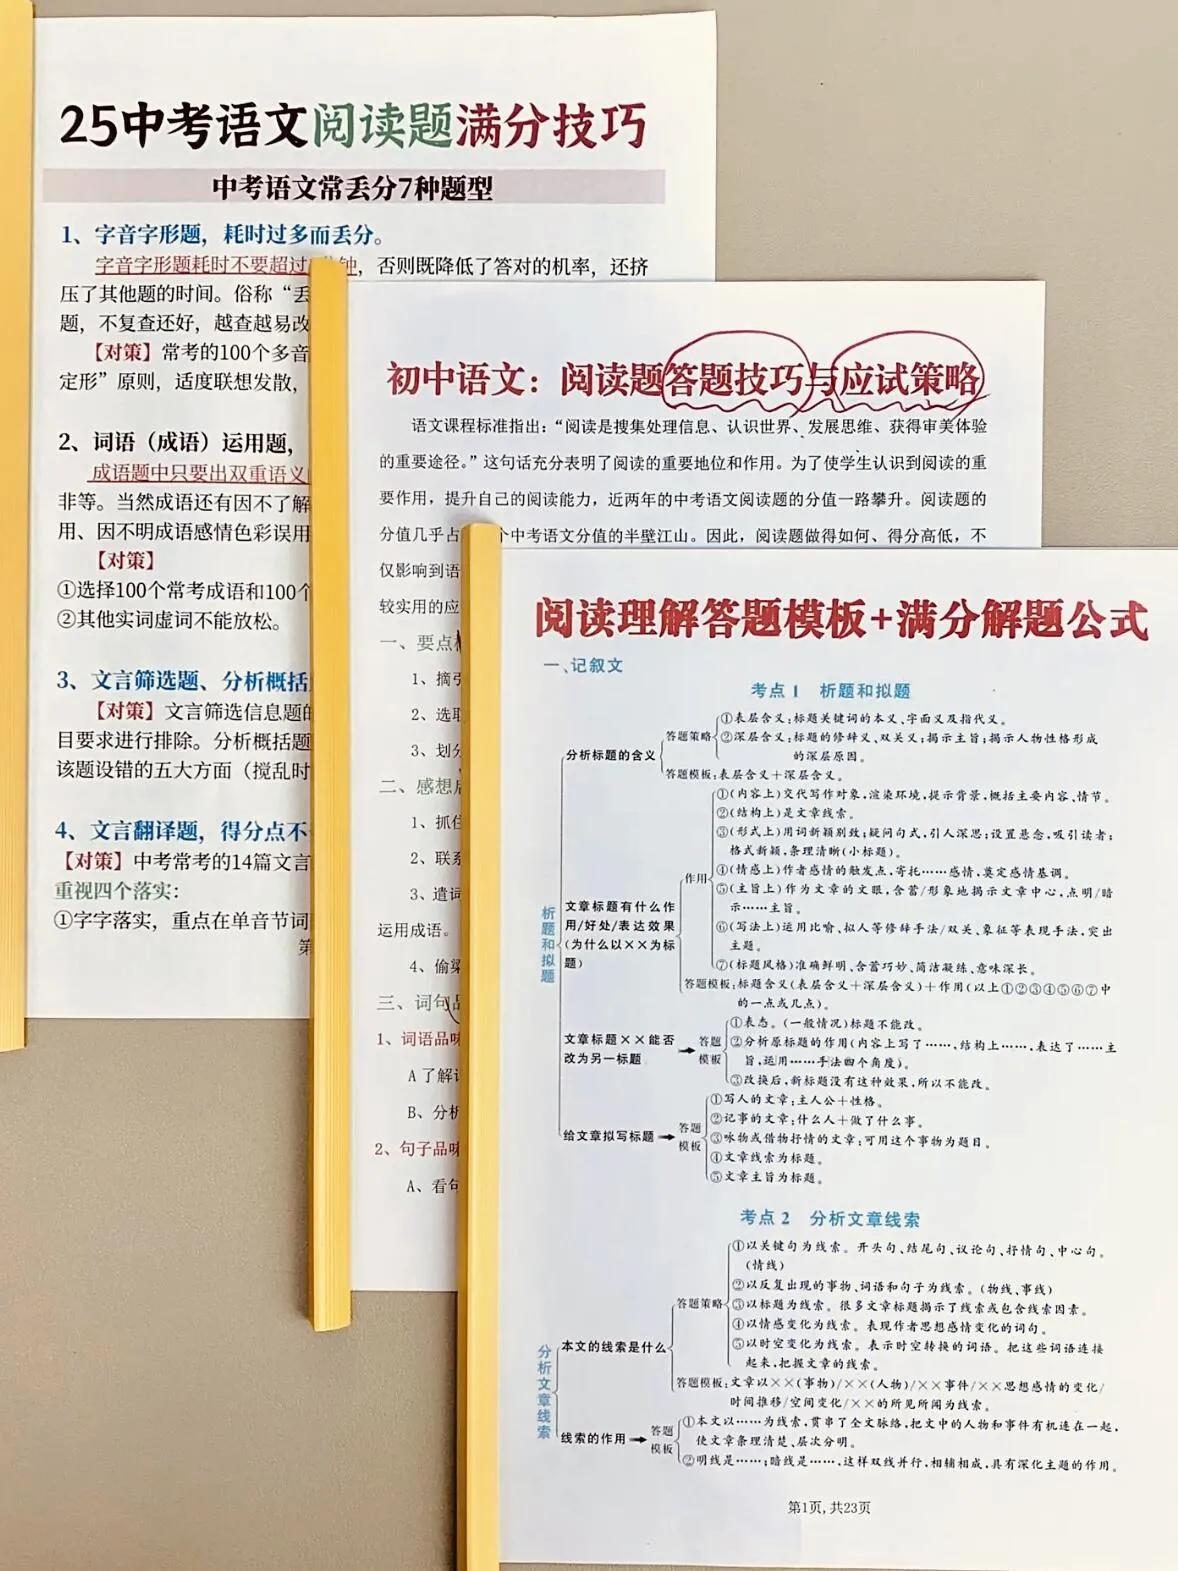 25中考语文阅读题满分技巧
中考语文常丢分7种题型
1、字音字形题，耗时过多而丢分。
字音字形题耗时不要超过
钟，否则既降低了答对的机率，还挤
压了其他题的时间。俗称“丢
题，不复查还好，越查越易改
【对策】常考的100个多音
定形”原则，适度联想发散，
2、词语（成语）运用题，
成语题中只要出双重语义
非等。当然成语还有因不了解
用、因不明成语感情色彩误用
【对策】
①选择100个常考成语和100个
②其他实词虚词不能放松。
3、文言筛选题、分析概括
【对策】文言筛选信息题的
目要求进行排除。分析概括题
该题设错的五大方面（搅乱时
4、文言翻译题，得分点不
【对策】中考常考的14篇文言
重视四个落实：
①字字落实，重点在单音节词
第
初中语文：阅读题答题技巧与应试策略
语文课程标准指出：“阅读是搜集处理信息、认识世界、发展思维、获得审美体验
的重要途径。”这句话充分表明了阅读的重要地位和作用。为了使学生认识到阅读的重
要作用，提升自己的阅读能力，近两年的中考语文阅读题的分值一路攀升。阅读题的
分值几乎占
个中考语文分值的半壁江山。因此，阅读题做得如何、得分高低，不
仅影响到语
较实用的应
一、要点
1、摘引
2、选取
3、划分
二、感想
1、抓住
2、联系
3、遣词
运用成语。
4、偷梁
三、词句品
1、词语品味
A 了解
B、分析
2、句子品味
A、看句
阅读理解答题模板+满分解题公式
一、记叙文
考点 1 析题和拟题
析题和拟题
分析标题的含义
答题策略
①表层含义：标题关键词的本义、字面义及指代义。
②深层含义：标题的修辞义、双关义；揭示主旨；揭示人物性格形成
的深层原因。
答题模板：表层含义＋深层含义。
文章标题有什么作
用/好处/表达效果
（为什么以××为标
题）
作用
①（内容上）交代写作对象，渲染环境，提示背景，概括主要内容、情节。
②（结构上）是文章线索。
③（形式上）用词新颖别致；疑问句式，引人深思；设置悬念，吸引读者；
格式新颖，条理清晰（小标题）。
④（情感上）作者感情的触发点，寄托……感情，奠定感情基调。
⑤（主旨上）作为文章的文眼，含蓄/形象地揭示文章中心，点明/暗
示……主旨。
⑥（写法上）运用比喻、拟人等修辞手法/双关、象征等表现手法，突出
主题。
⑦（标题风格）准确鲜明、含蓄巧妙、简洁凝练、意味深长。
答题模板：标题含义（表层含义＋深层含义）＋作用（以上①②③④⑤⑥⑦中
的一点或几点）。
文章标题××能否
改为另一标题
答题
模板
①表态。（一般情况）标题不能改。
②分析原标题的作用（内容上写了……，结构上……，表达了……主
旨，运用……手法四个角度）。
③改换后，新标题没有这种效果，所以不能改。
给文章拟写标题
答题
模板
①写人的文章：主人公＋性格。
②记事的文章：什么人＋做了什么事。
③咏物或借物抒情的文章：可用这个事物为题目。
④文章线索为标题。
⑤文章主旨为标题。
考点 2 分析文章线索
分析文章线索
本文的线索是什么
答题策略
①以关键句为线索。开头句、结尾句、议论句、抒情句、中心句。
（情线）
②以反复出现的事物、词语和句子为线索。（物线、事线）
③以标题为线索。很多文章标题揭示了线索或包含线索因素。
④以情感变化为线索。表现作者思想感情变化的词句。
⑤以时空变化为线索。表示时空转换的词语。把这些词语连接
起来，把握文章的线索。
答题模板：文章以××（事物）/××（人物）/××事件/××思想感情的变化/
时间推移/空间变化/××的所见所闻为线索。
线索的作用
答题
模板
①本文以……为线索，贯串了全文脉络，把文中的人物和事件有机连在一起，
使文章条理清楚、层次分明。
②明线是……；暗线是……，这样双线并行，相辅相成，具有深化主题的作用。
第1页，共23页